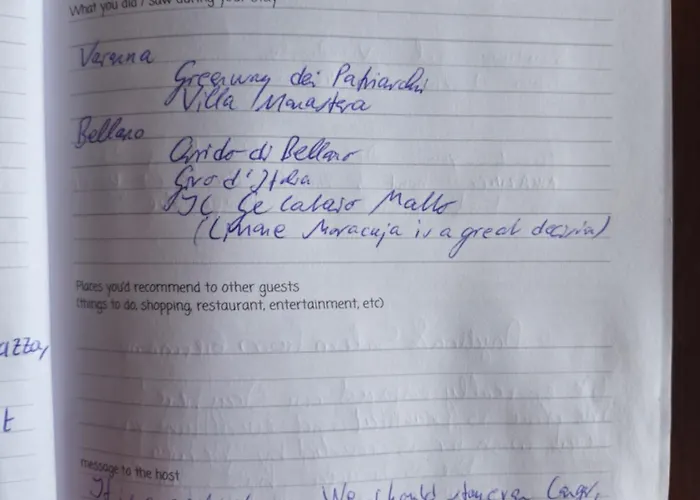 What you did / saw during your stay
Varenna
Greenway dei Patriarchi
Villa Monastero
Bellano
Orrido di Bellano
Giro d'Italia
Il Gelataio Matto
(Limone Maracuja is a great decision)
Places you'd recommend to other guests
(things to do, shopping, restaurant, entertainment, etc)
azzo,
t
message to the host
We should